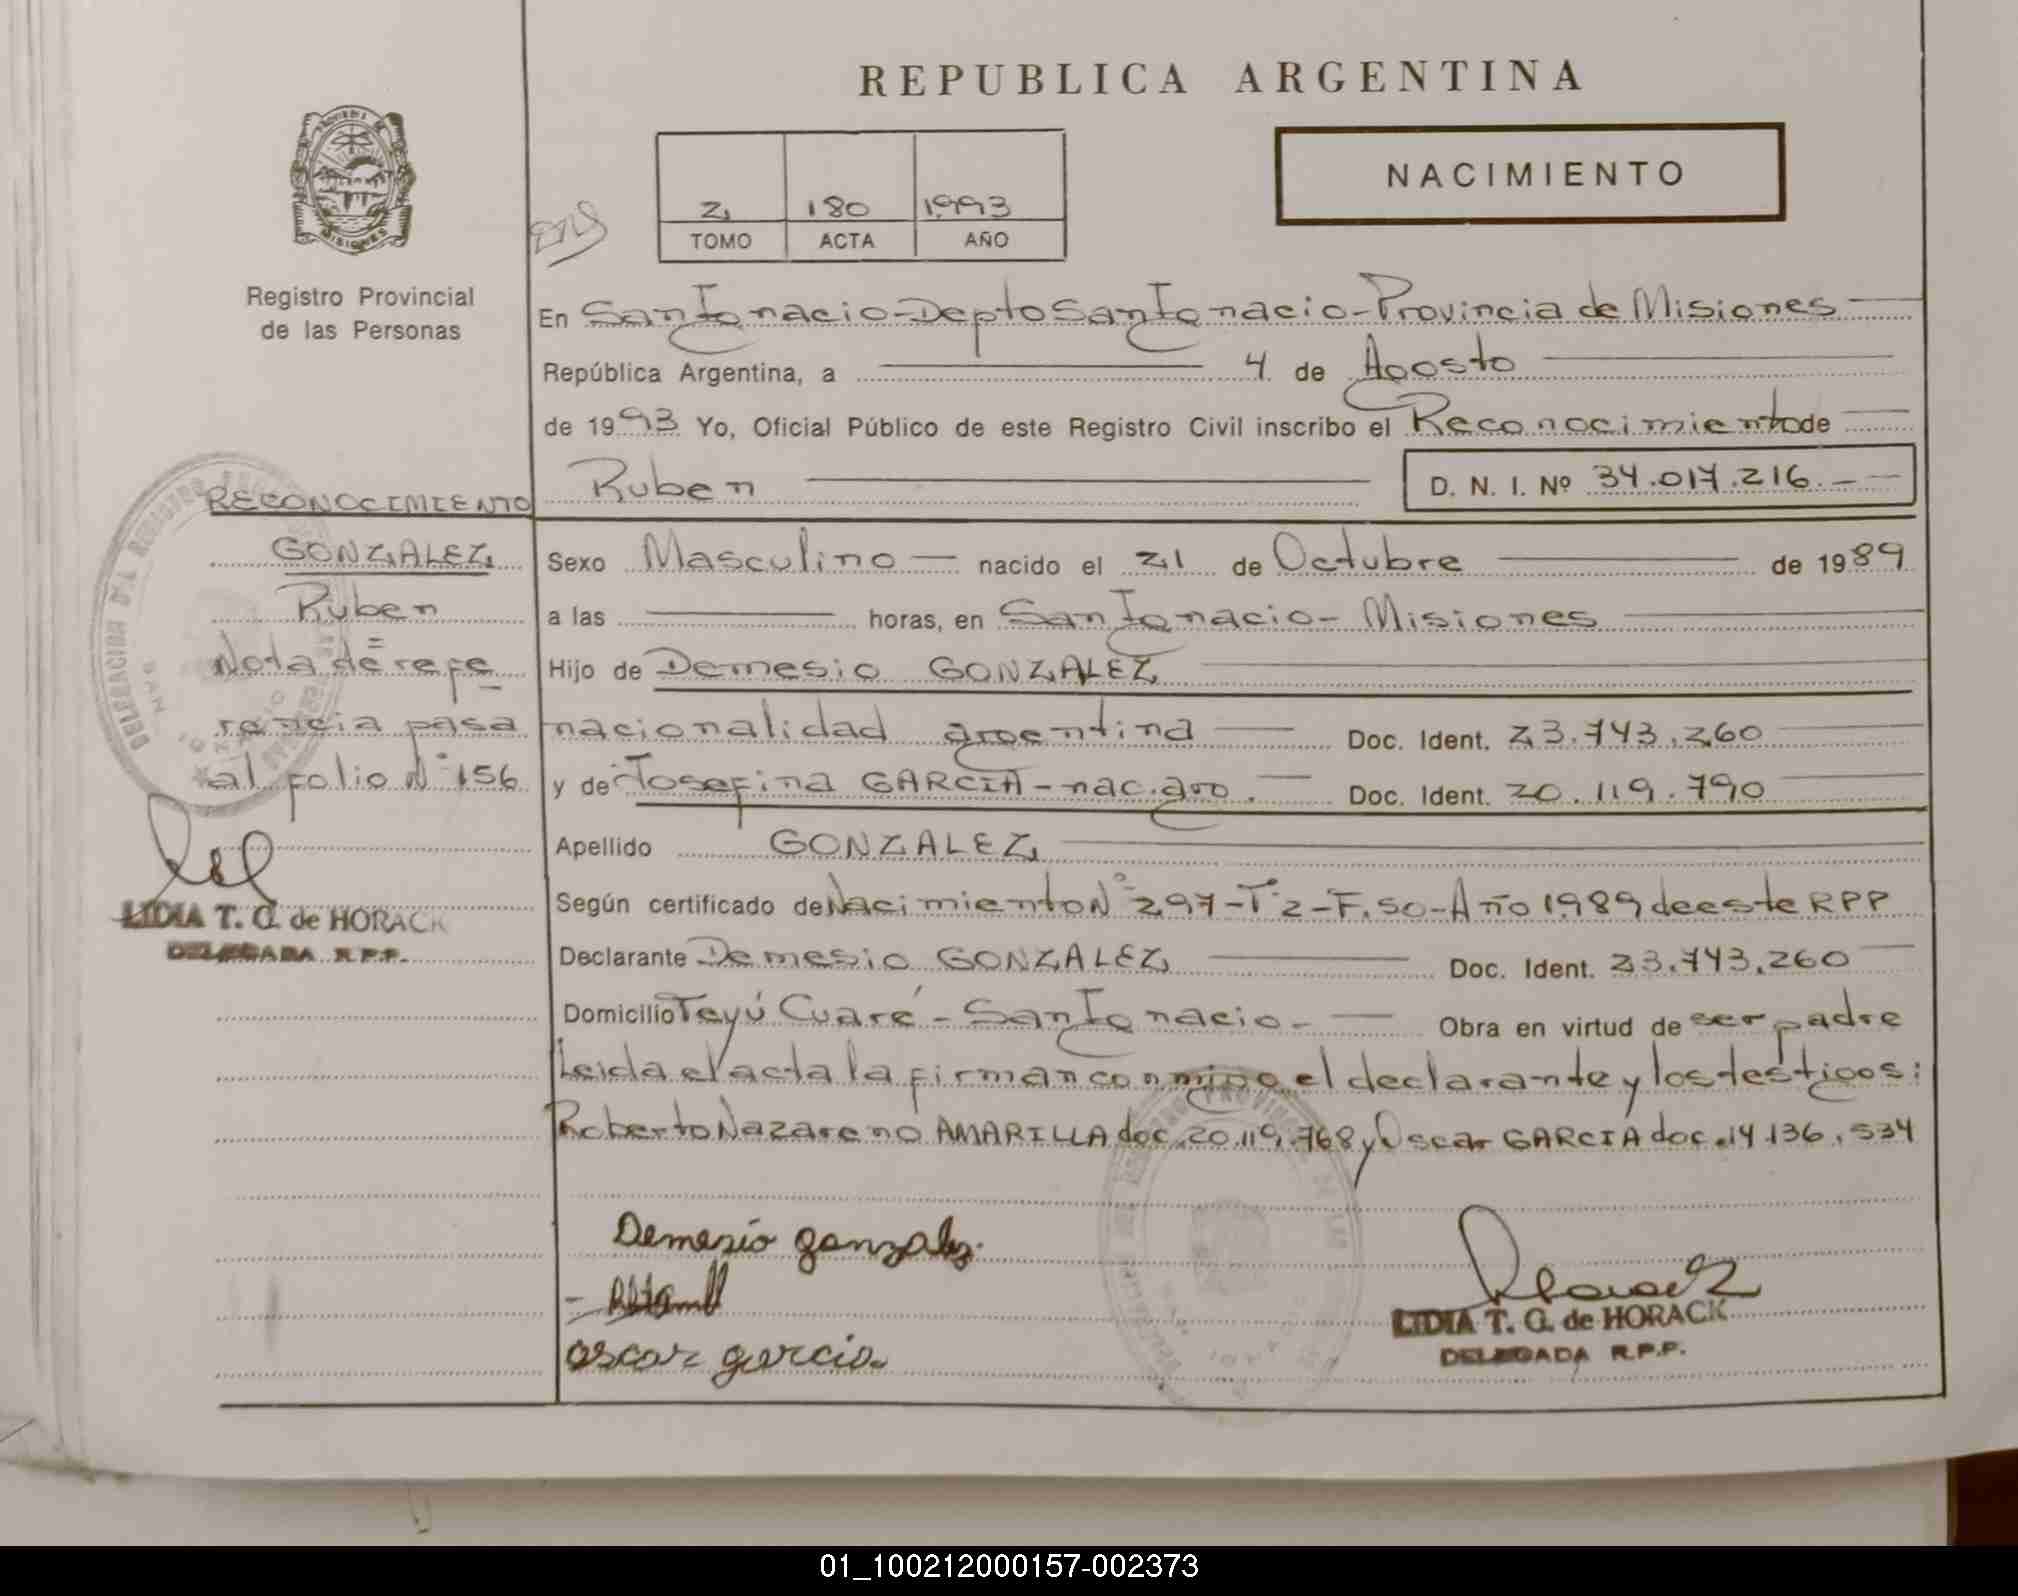 REPUBLICA ARGENTINA
NACIMIENTO
2 180 1993
TOMO ACTA AÑO
MISIONES
Registro Provincial
de las Personas
En San Ignacio-Depto San Ignacio-Provincia de Misiones
República Argentina, a 4 de Agosto
de 1993 Yo, Oficial Público de este Registro Civil inscribo el Reconocimiento de
Ruben D. N. I. Nº 34.017.216.-
RECONOCIMIENTO
GONZALEZ
Ruben
Nota de refe
rencia pasa
al folio Nº 156
LIDIA T. G. de HORACK
DELEGADA R.P.P.
Sexo Masculino nacido el 21 de Octubre de 1989
a las horas, en San Ignacio- Misiones
Hijo de Demesio GONZALEZ
nacionalidad argentina Doc. Ident. 23.743.260
y de Josefina GARCIA-nac.arg. Doc. Ident. 20.119.790
Apellido GONZALEZ
Según certificado de Nacimiento Nº 297-Tº2-F.50-Año 1989 de este RPP
Declarante Demesio GONZALEZ Doc. Ident. 23.743.260
Domicilio Teyú Cuaré-San Ignacio- Obra en virtud de ser padre
Leida el acta la firman conmigo el declarante y los testigos:
Roberto Nazareno AMARILLA doc.20.119.768 y Oscar GARCIA doc.14.136.534
Demesio gonzalez.
oscar garcia.
LIDIA T. G. de HORACK
DELEGADA R.P.P.
01_100212000157-002373